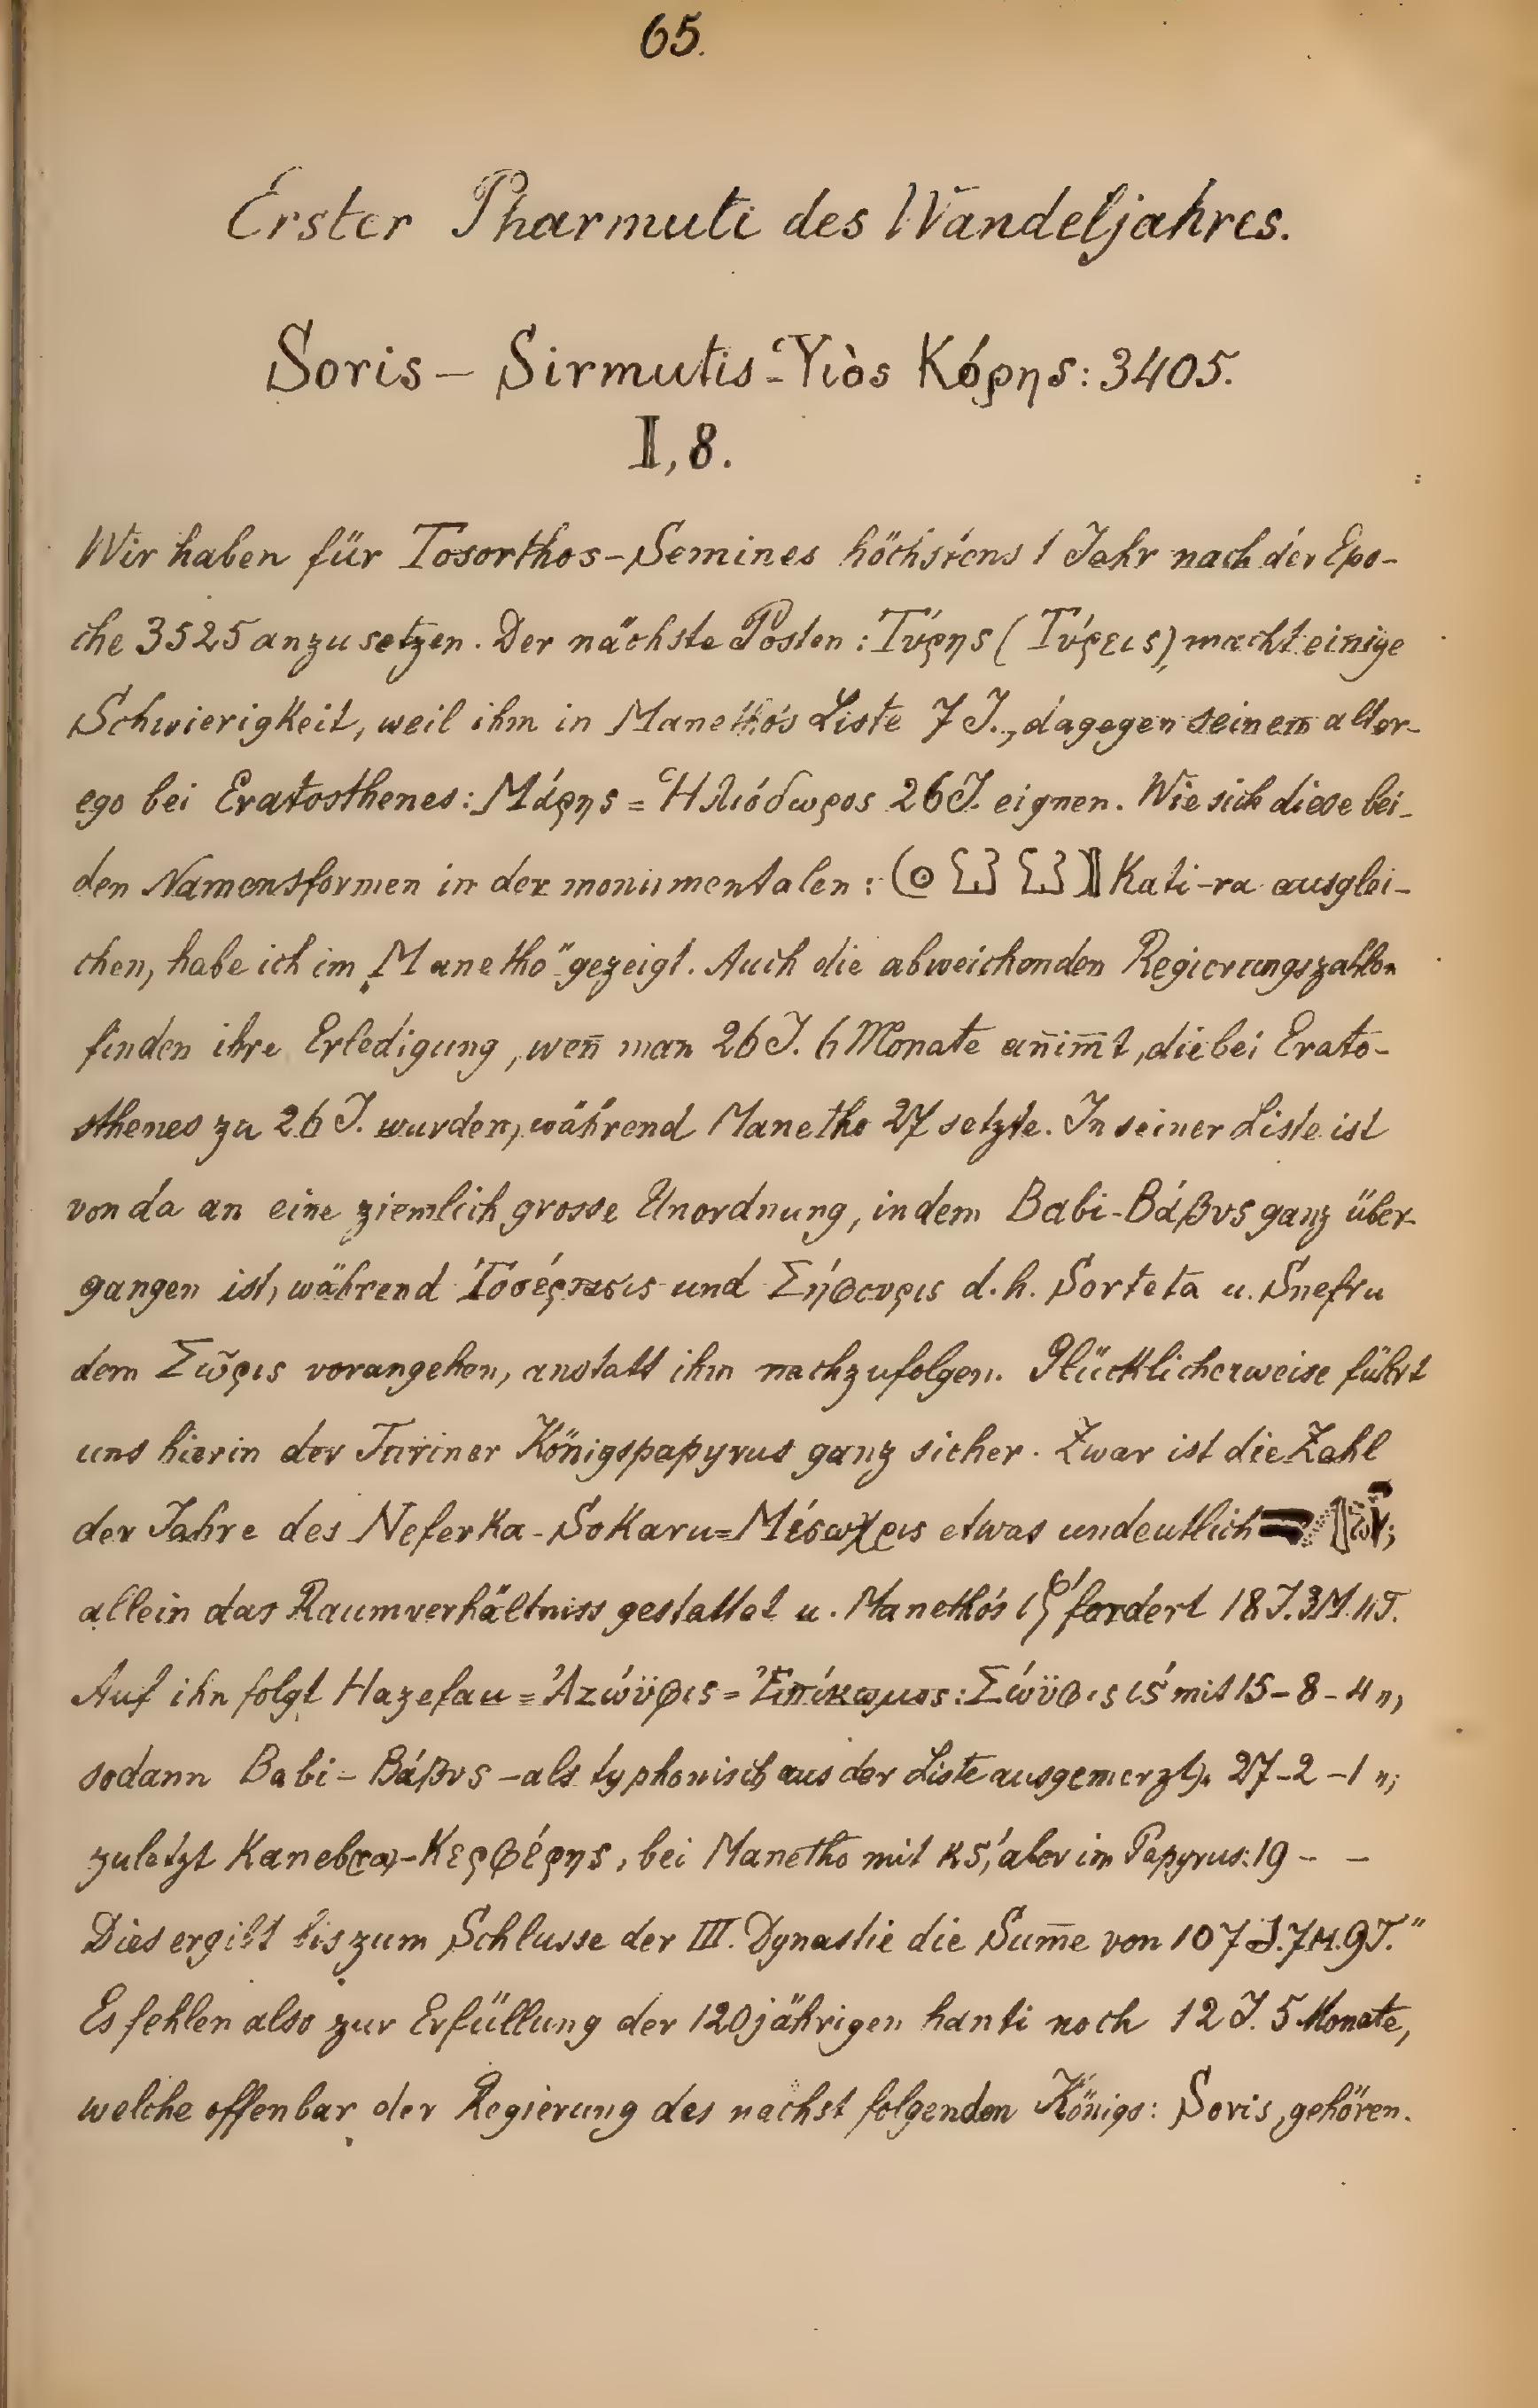 65.
Erster Pharmuti des Wandeljahres.
Soris – Sirmutis - Ὑιὸς Κόρης: 3405.
I, 8.
Wir haben für Tosorthos-Semines höchstens 1 Jahr nach der Epo-
che 3525 anzusetzen. Der nächste Posten: Τύρης (Τύρεις) macht einige
Schwierigkeit, weil ihm in Manethós Liste 7 J., dagegen seinem alter-
ego bei Eratosthenes: Μάρης = Ἡλιόδωρος 26 J. eignen. Wie sich diese bei-
den Namensformen in der monumentalen: Kati-ra ausglei-
chen, habe ich im „Manetho“ gezeigt. Auch die abweichenden Regierungszahlen
finden ihre Erledigung, weñ man 26 J. 6 Monate añim̄t, die bei Erato-
sthenes zu 26 J. wurden, während Manetho 27 setzte. In seiner Liste ist
von da an eine ziemlich grosse Unordnung, indem Babi-Βάβυς ganz über-
gangen ist, während Τοσέρτασις und Σήφουρις d. h. Sorteta u. Snefru
dem Σῶρις vorangehen, anstatt ihm nachzufolgen. Glücklicherweise führt
uns hierin der Turiner Königspapyrus ganz sicher. Zwar ist die Zahl
der Jahre des Neferka-Sokaru = Μέσωχρις etwas undeutlich
allein das Raumverhältniss gestattet u. Manethós fordert 18 J. 3 M. 4 T.
Auf ihn folgt Hazefau = Ἀζώϋφις = Ἐπίκωμος: Σώϋφις ις́ mit 15 – 8 – 4 „,
sodann Babi – Βάβυς – als typhonisch aus der Liste ausgemerzt), 27 – 2 – 1 „;
zuletzt Kaneb(ra) - Κερφέρης, bei Manetho mit κς́, aber im Papyrus: 19 – –
Dies ergibt bis zum Schlusse der III. Dynastie die Sum̄e von 107 J. 7 M. 9 T.“
Es fehlen also zur Erfüllung der 120jährigen hanti noch 12 J. 5 Monate,
welche offenbar der Regierung des nächst folgenden Königs: Soris, gehören.